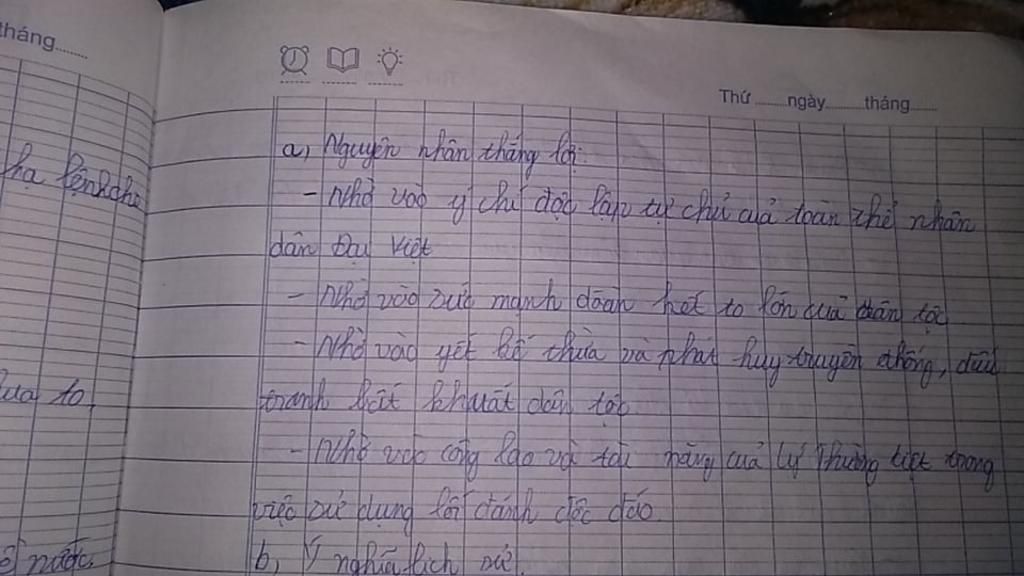 tháng
Thứ ngày tháng
a, Nguyên nhân thắng lợi:
- Nhờ vào ý chí độc lập tự chủ của toàn thể nhân
dân Đại Việt
- Nhờ vào sức mạnh đoàn kết to lớn của dân tộc
- Nhờ vào yết kế thừa và phát huy truyền thống, đấu
tranh bất khuất dân tộc
- Nhờ vào công lao và tài năng của Lý Thường Kiệt trong
việc sử dụng lối đánh độc đáo
b, Ý nghĩa lịch sử.
to,
nước,